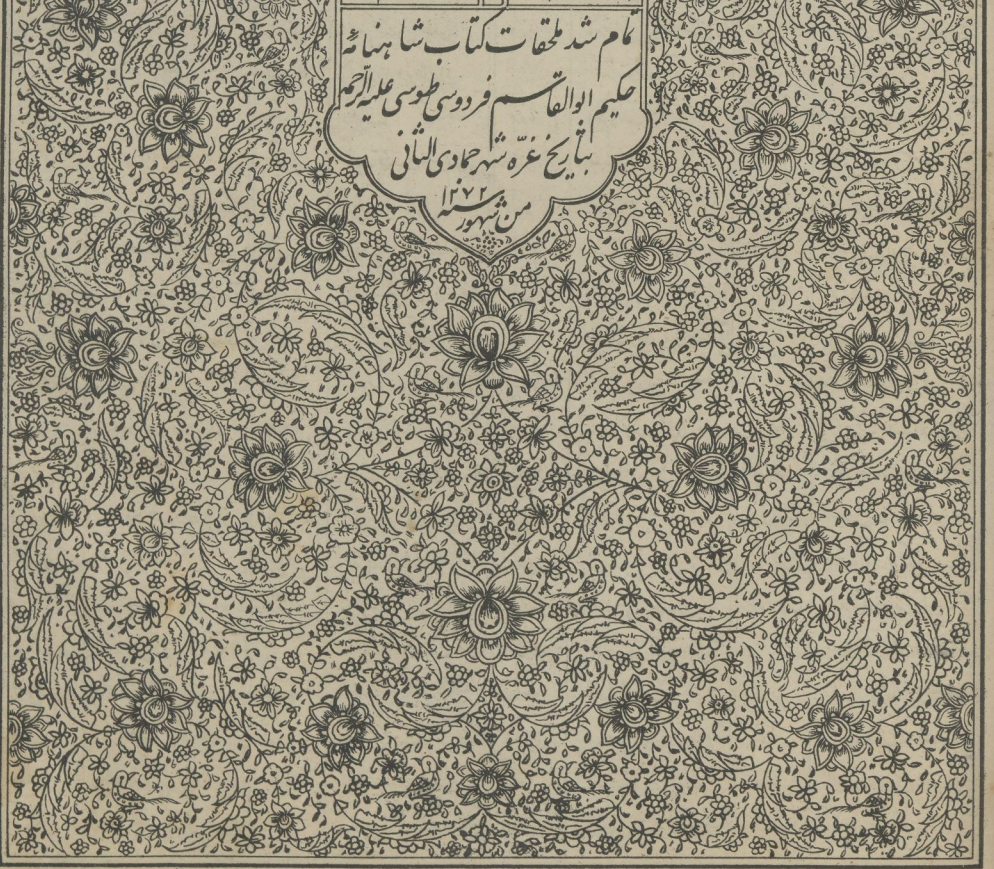 تمام شد ملحقات کتاب شاهنامهٔ
حکیم ابوالقاسم فردوسی طوسی علیه الرحمه
بتاریخ غرّه شهر جمادی الثانی
من شهور سنه ۱۲۷۲